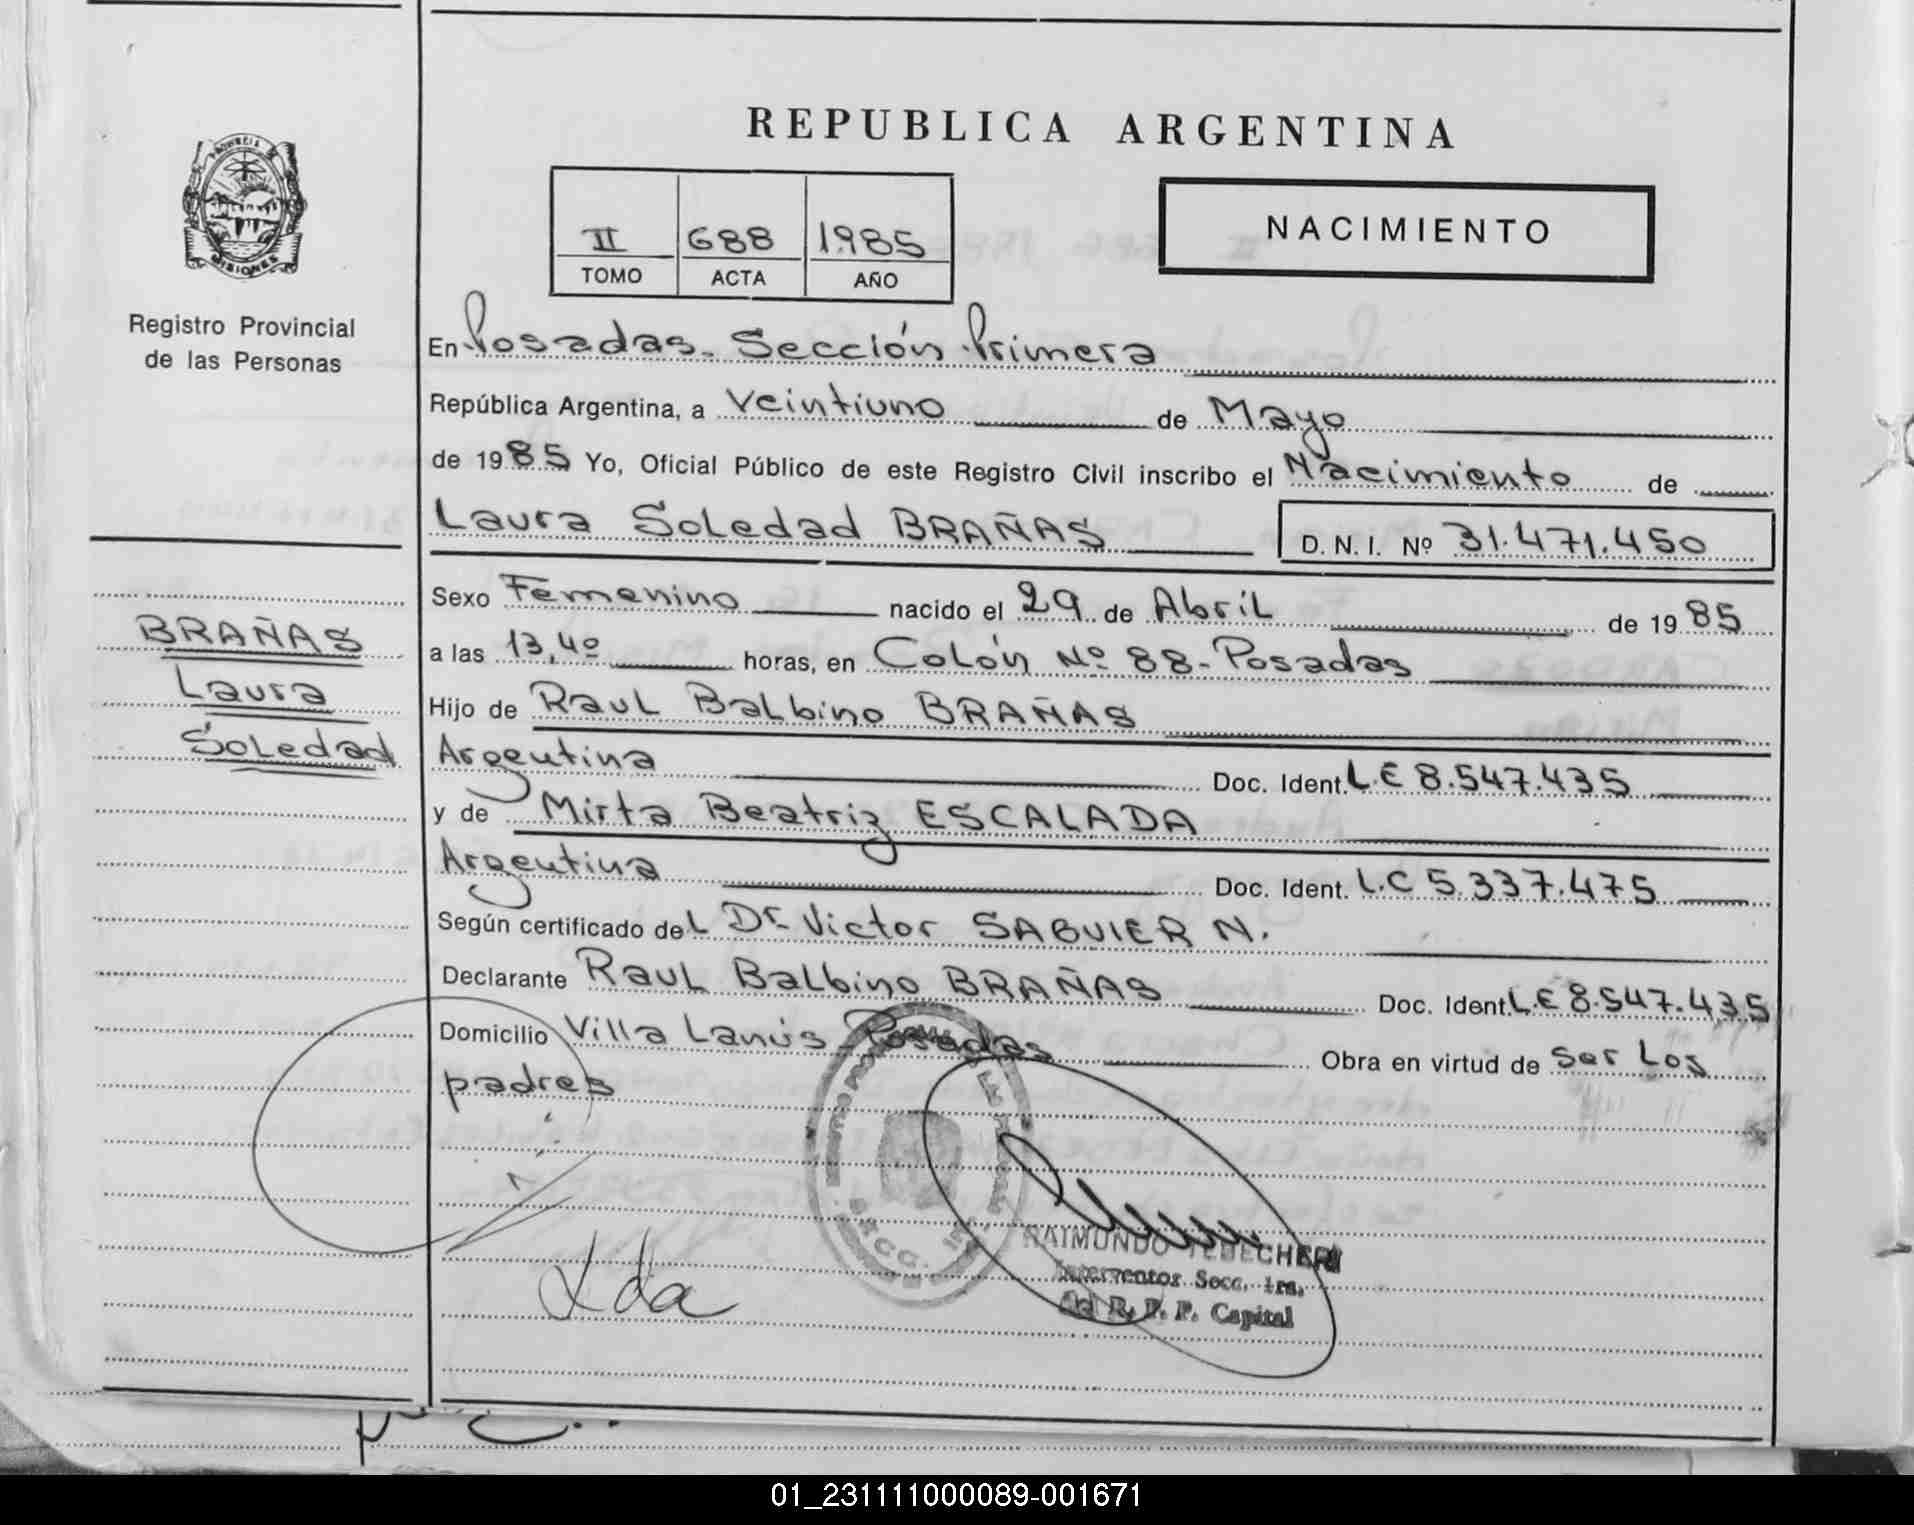 REPUBLICA ARGENTINA
PROVINCIA DE
MISIONES
Registro Provincial
de las Personas
II 688 1985
TOMO ACTA AÑO
NACIMIENTO
En Posadas. Sección Primera
República Argentina, a Veintiuno de Mayo
de 1985 Yo, Oficial Público de este Registro Civil inscribo el Nacimiento de
Laura Soledad BRAÑAS D. N. I. Nº 31.471.450
Sexo Femenino nacido el 29 de Abril de 1985
a las 13,40 horas, en Colón Nº 88-Posadas
Hijo de Raul Balbino BRAÑAS
Argentina Doc. Ident. L.E 8.547.435
y de Mirta Beatriz ESCALADA
Argentina Doc. Ident. L.C 5.337.475
Según certificado del Dr. Victor SAGUIER N.
Declarante Raul Balbino BRAÑAS Doc. Ident. L.E 8.547.435
Domicilio Villa Lanús-Posadas Obra en virtud de ser Los
padres
BRAÑAS
Laura
Soledad
SECC.
RAIMUNDO TEBECHERI
Interventor Secc. 1ra.
del R. P. P. Capital
01_231111000089-001671